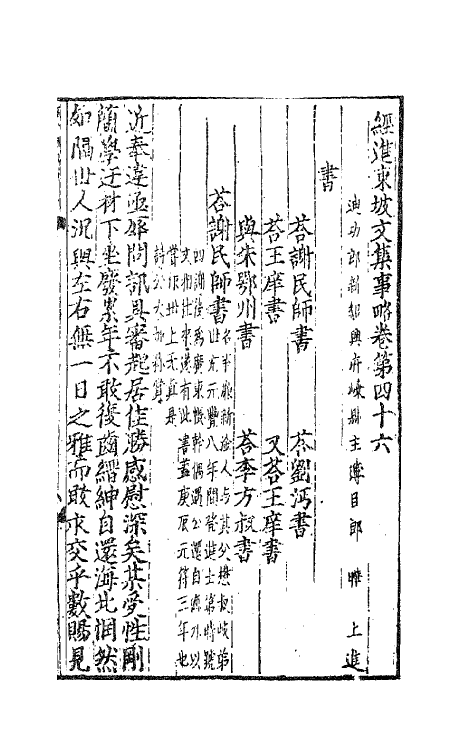 經進東坡文集事略卷第四十六
迪功郎新紹興府嵊縣主簿臣郎 曄 上進
書
荅謝民師書 荅劉沔書
荅王庠書 又荅王庠書
與朱鄂州書 荅李方叔書
荅謝民師書
近奉違亟辱問訊具審起居佳勝感慰深矣某受性剛
簡學迂材下坐廢累年不敢復齒縉紳自還海北惘然
如隔世人況與左右無一日之雅而敢求交乎數賜見